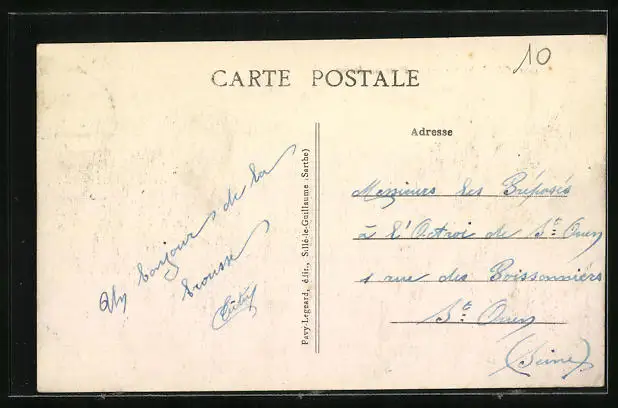 10
CARTE POSTALE
Adresse
Un bonjour de la
brousse
Pavy-Legeard, édit., Sillé-le-Guillaume (Sarthe)
Messieurs les Préposés
à l'Octroi de St Ouen
1 rue des Poissonniers
St Ouen
(Seine)